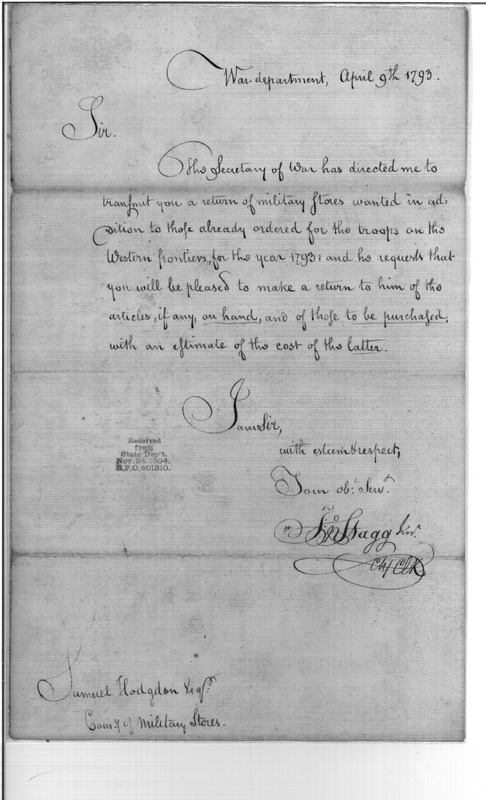 War-department, April 9th 1793.
Sir.
The Secretary of War has directed me to
transmit you a return of military Stores wanted in ad-
dition to those already ordered for the troops on the
Western frontiers, for the year 1793; and he requests that
you will be pleased to make a return to him of the
articles, if any, on hand, and of those to be purchased,
with an estimate of the cost of the latter.
I am Sir,
with esteem & respect,
Your obt. Servt.
Jno Stagg Junr.
Chf Clk
Received
from
State Dep't.
Nov. 24, 1904.
R.P.O. 401310.
Samuel Hodgdon Esqr.
Comy of Military Stores.